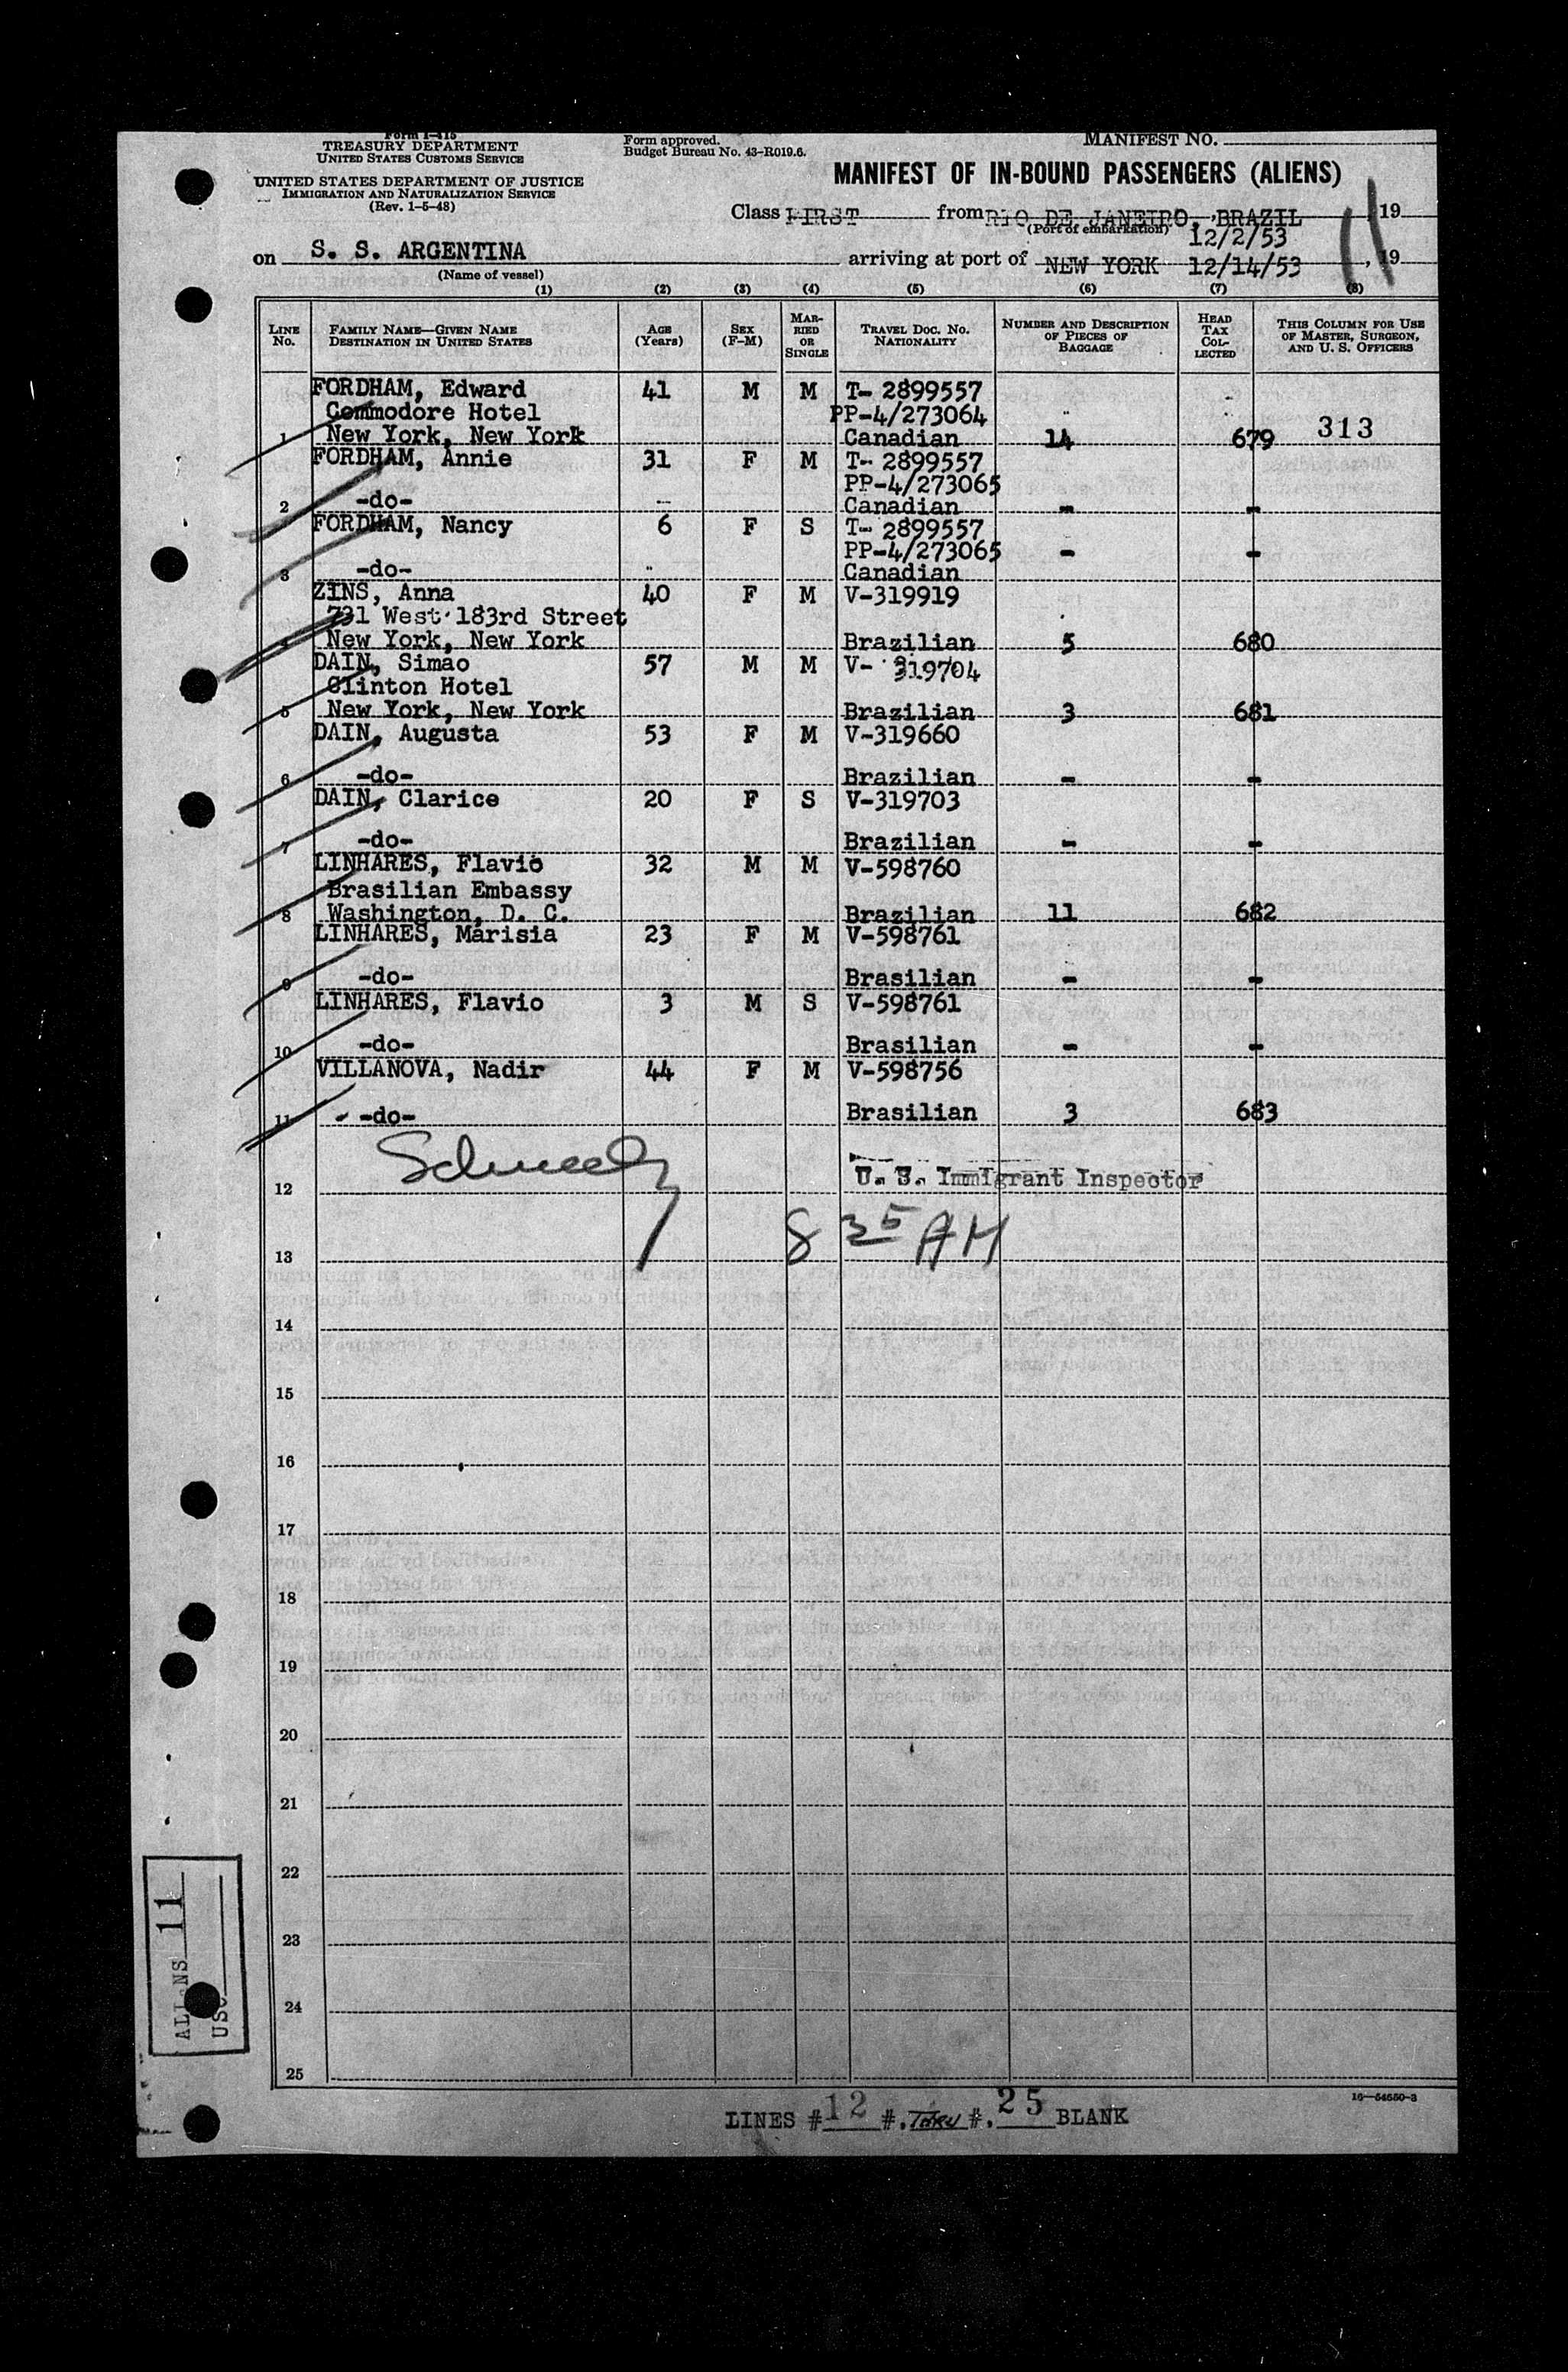 Form I-415
TREASURY DEPARTMENT
UNITED STATES CUSTOMS SERVICE
UNITED STATES DEPARTMENT OF JUSTICE
IMMIGRATION AND NATURALIZATION SERVICE
(Rev. 1-5-48)
Form approved.
Budget Bureau No. 43-R019.6.
MANIFEST NO.
MANIFEST OF IN-BOUND PASSENGERS (ALIENS)
Class FIRST from RIO DE JANEIRO, BRAZIL 19
(Port of embarkation) 12/2/53
on S. S. ARGENTINA arriving at port of NEW YORK 12/14/53 , 19
(Name of vessel)
(1) (2) (3) (4) (5) (6) (7) (8)
LINE No. FAMILY NAME—GIVEN NAME DESTINATION IN UNITED STATES AGE (Years) SEX (F-M) MARRIED OR SINGLE TRAVEL DOC. NO. NATIONALITY NUMBER AND DESCRIPTION OF PIECES OF BAGGAGE HEAD TAX COLLECTED THIS COLUMN FOR USE OF MASTER, SURGEON, AND U. S. OFFICERS
FORDHAM, Edward 41 M M T- 2899557
Commodore Hotel PP-4/273064
1 New York, New York Canadian 14 679 313
FORDHAM, Annie 31 F M T- 2899557
PP-4/273065
2 -do- Canadian - -
FORDHAM, Nancy 6 F S T- 2899557
PP-4/273065 - -
3 -do- Canadian
ZINS, Anna 40 F M V-319919
731 West 183rd Street
4 New York, New York Brazilian 5 680
DAIN, Simao 57 M M V- 319704
Clinton Hotel
5 New York, New York Brazilian 3 681
DAIN, Augusta 53 F M V-319660
6 -do- Brazilian - -
DAIN, Clarice 20 F S V-319703
7 -do- Brazilian - -
LINHARES, Flavio 32 M M V-598760
Brasilian Embassy
8 Washington, D. C. Brazilian 11 682
LINHARES, Marisia 23 F M V-598761
9 -do- Brasilian - -
LINHARES, Flavio 3 M S V-598761
10 -do- Brasilian - -
VILLANOVA, Nadir 44 F M V-598756
11 -do- Brasilian 3 683
12 U. S. Immigrant Inspector
13 8 35 AM
14
15
16
17
18
19
20
21
22
23
24
25
ALIENS 11
USC
16—54650-3
LINES # 12 #. THRU #. 25 BLANK